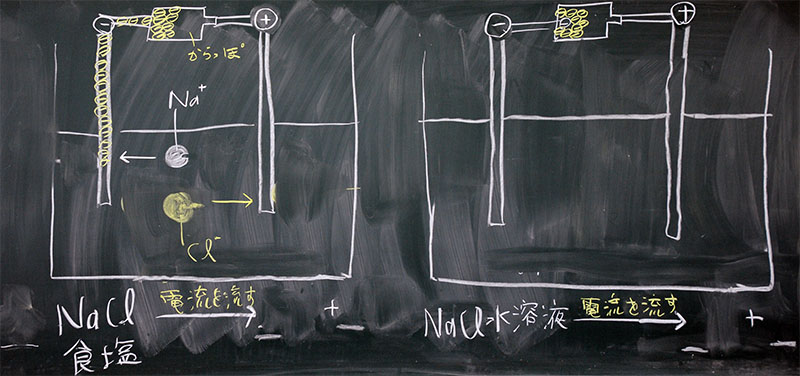 −
+
−
+
からっぽ
Na⁺
Cl⁻
NaCl 電流を流す + 
食塩
NaCl水溶液 電流を流す +